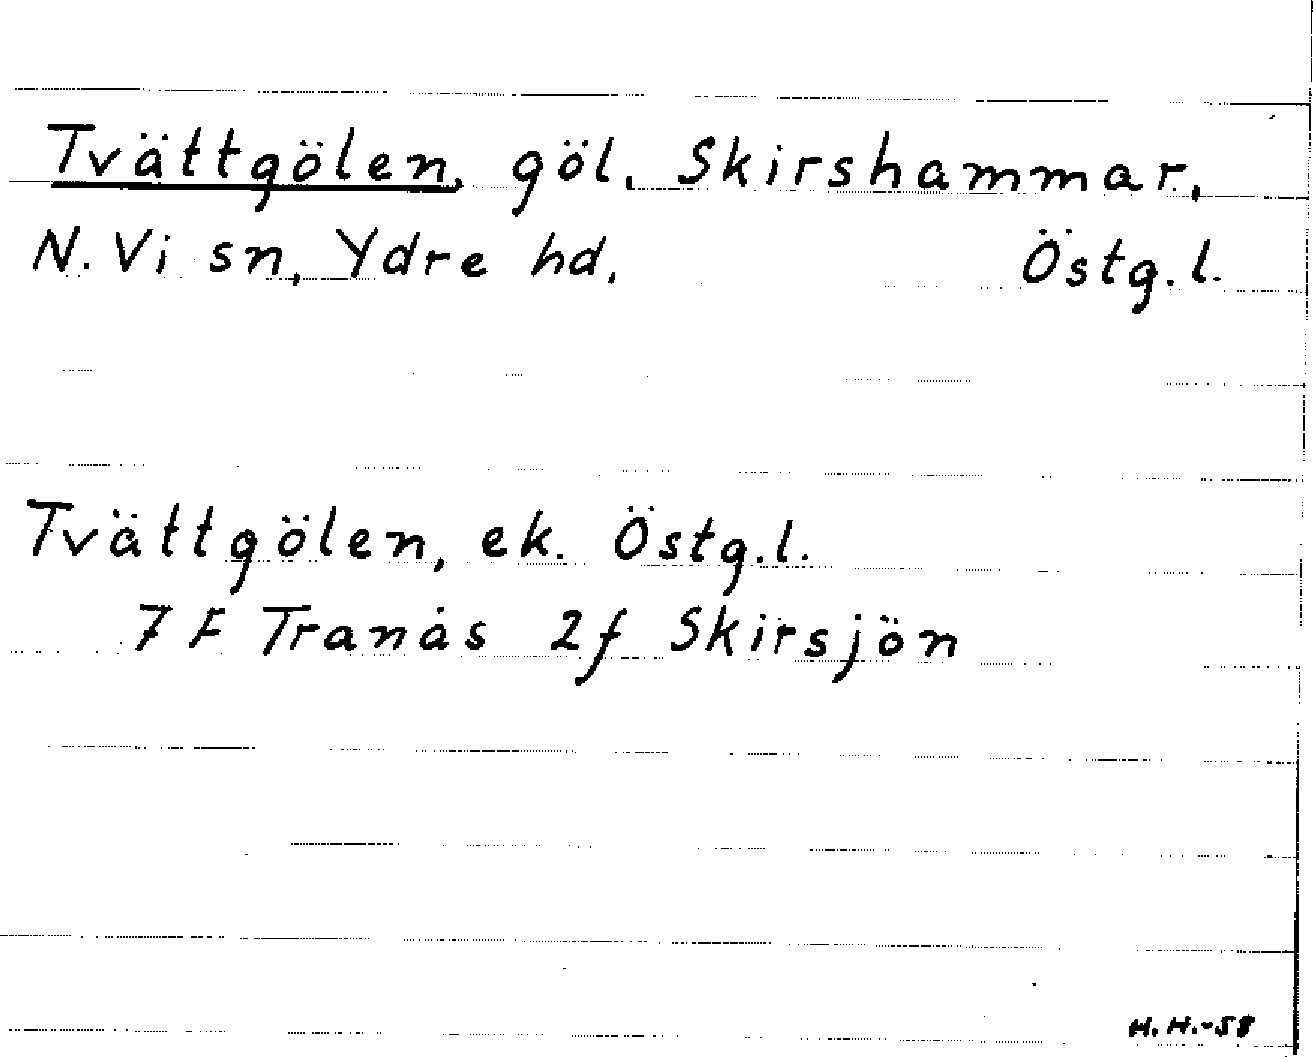 Tvättgölen, göl, Skirshammar,
N. Vi sn, Ydre hd, Östg.l.
Tvättgölen, ek. Östg.l.
7 F Tranås 2f Skirsjön
H.H.-58